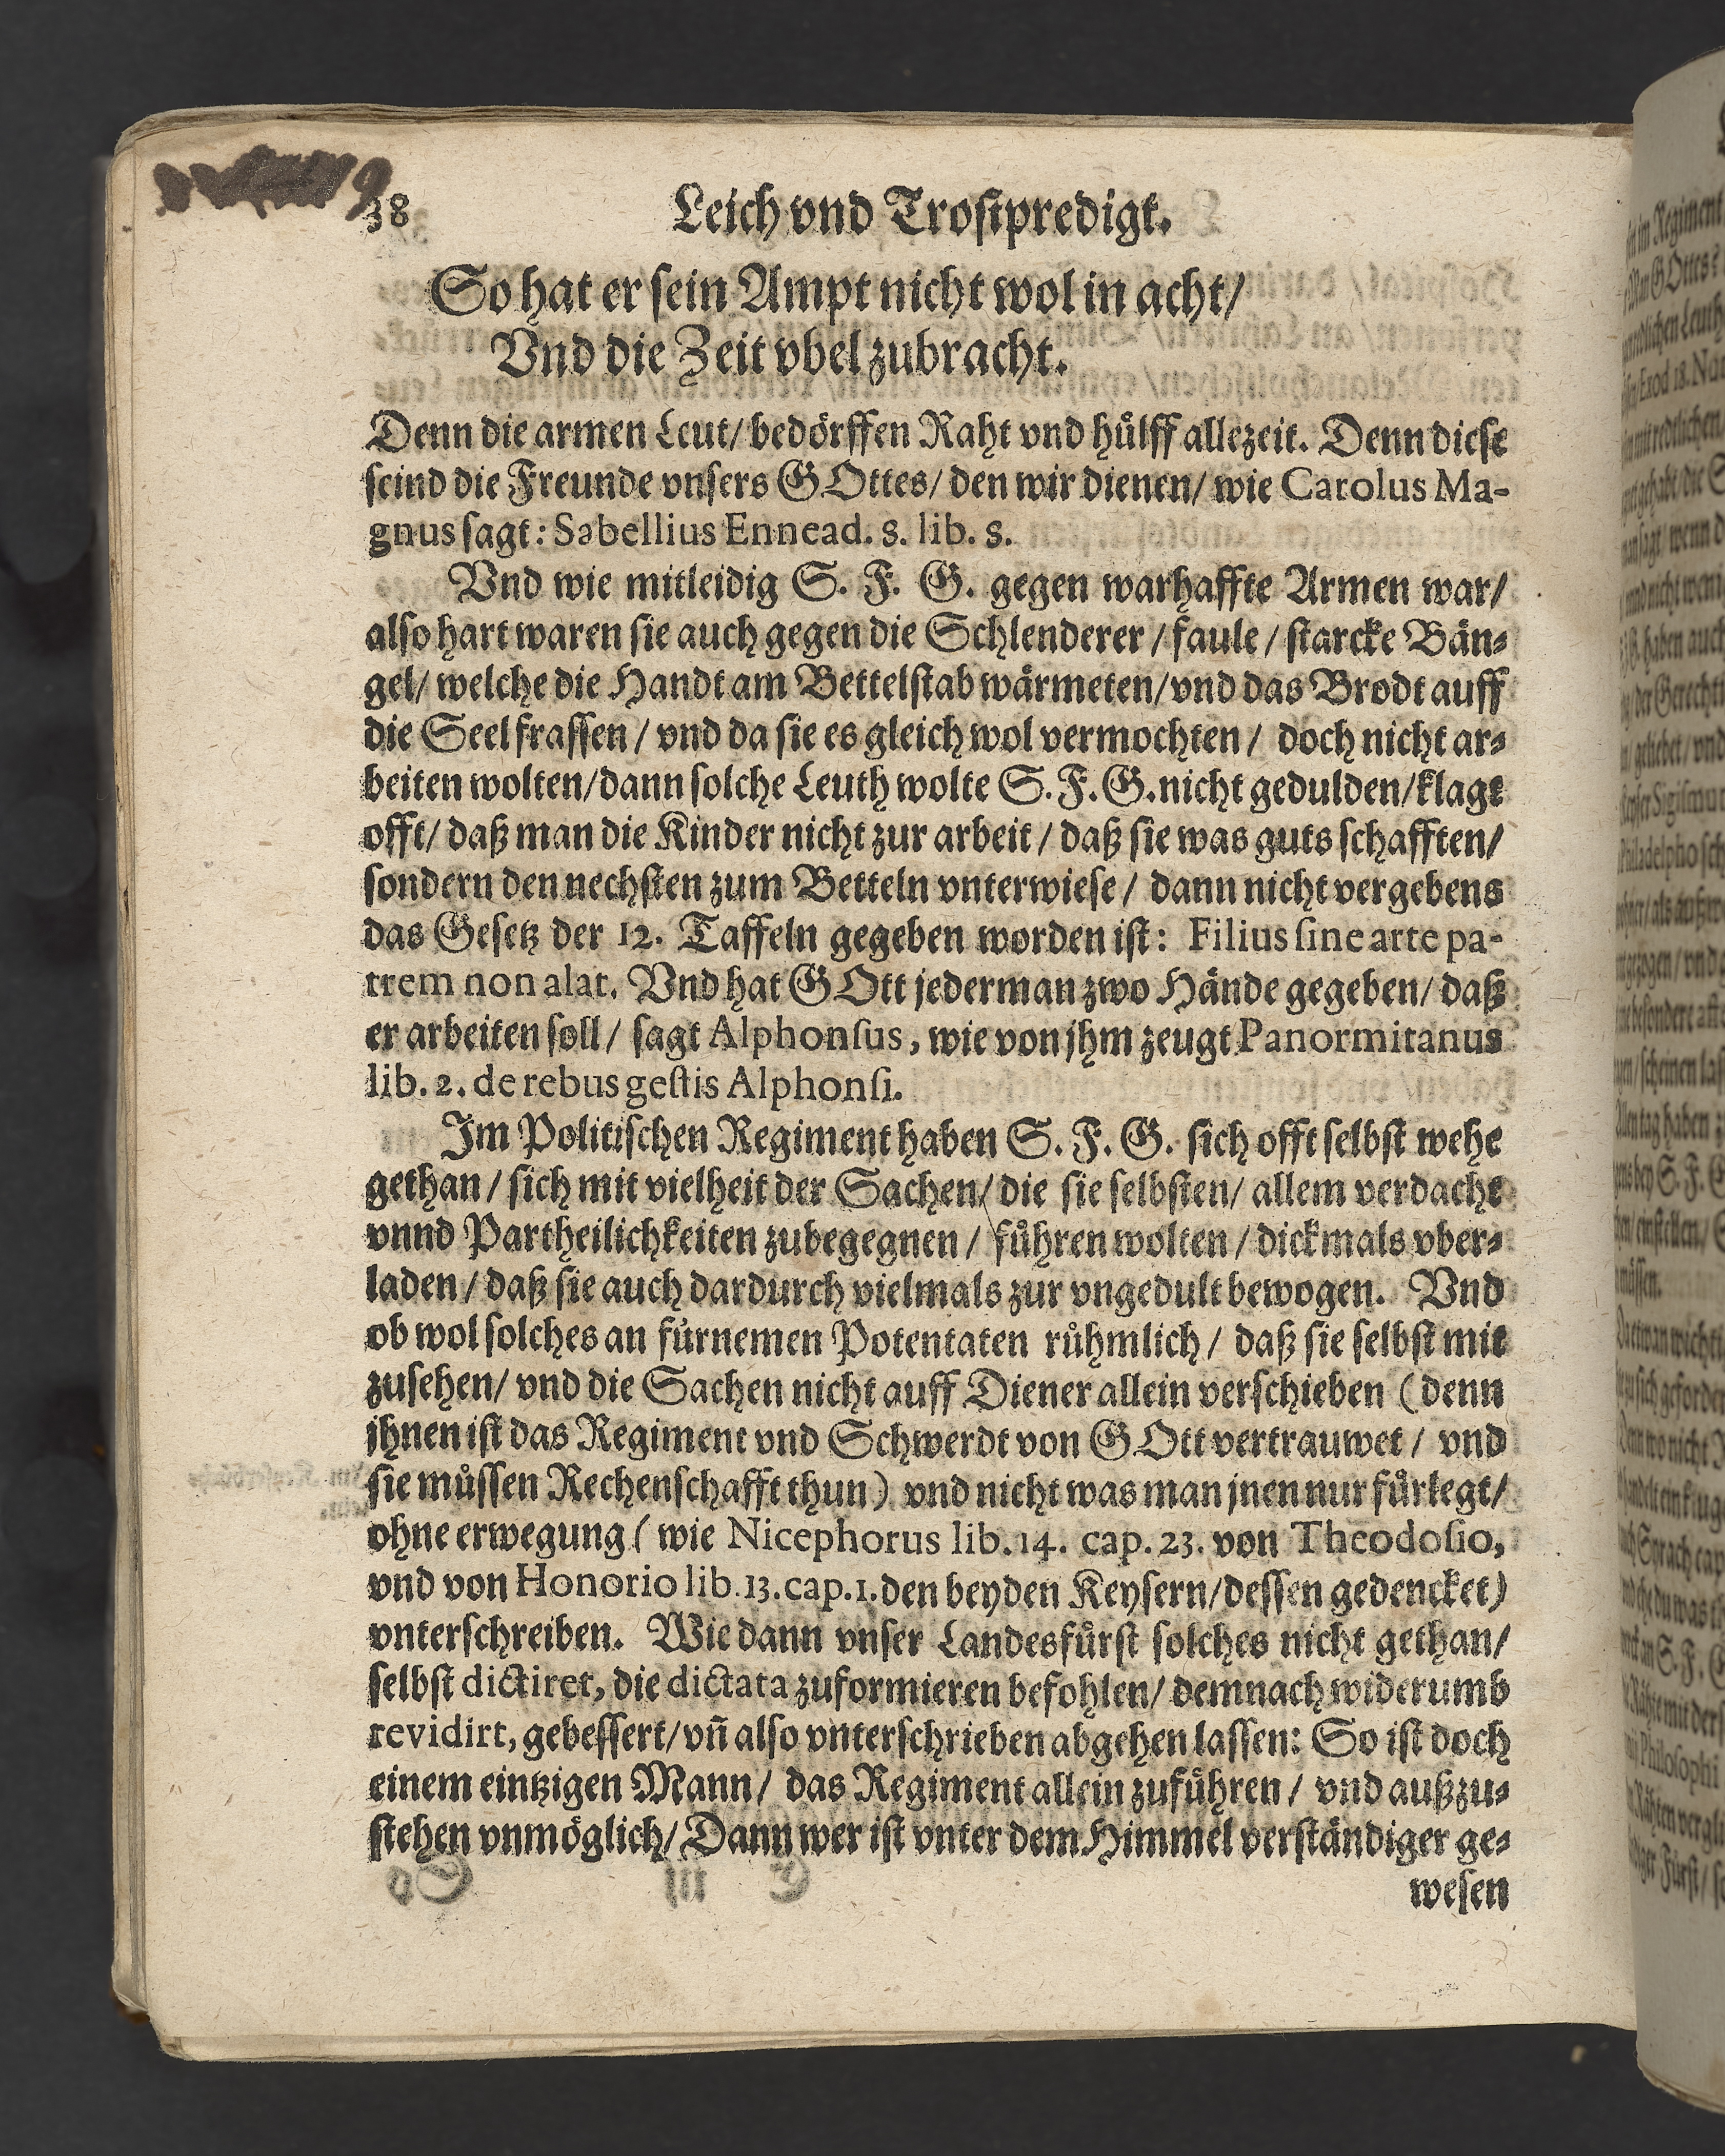 38 Leich vnd Trostpredigt.
So hat er sein Ampt nicht wol in acht/
Vnd die Zeit vbel zubracht.
Denn die armen Leut/ bedörffen Raht vnd hülff allezeit. Denn diese
seind die Freunde vnsers GOttes/ den wir dienen/ wie Carolus Ma-
gnus sagt: Sabellius Ennead. 8. lib. 8.
Vnd wie mitleidig S. F. G. gegen warhaffte Armen war/
also hart waren sie auch gegen die Schlenderer / faule / starcke Bän-
gel/ welche die Handt am Bettelstab wärmeten/ vnd das Brodt auff
die Seel frassen / vnd da sie es gleich wol vermochten / doch nicht ar-
beiten wolten/ dann solche Leuth wolte S. F. G. nicht gedulden/ klagt
offt/ daß man die Kinder nicht zur arbeit / daß sie was guts schafften/
sondern den nechsten zum Betteln vnterwiese / dann nicht vergebens
das Gesetz der 12. Taffeln gegeben worden ist: Filius ſine arte pa-
trem non alat. Vnd hat GOtt jederman zwo Hände gegeben/ daß
er arbeiten soll/ sagt Alphonſus, wie von jhm zeugt Panormitanus
lib. 2. de rebus geſtis Alphonſi.
Im Politischen Regiment haben S. F. G. sich offt selbst wehe
gethan / sich mit vielheit der Sachen/ die sie selbsten/ allem verdacht
vnnd Partheilichkeiten zubegegnen / führen wolten / dickmals vber-
laden / daß sie auch dardurch vielmals zur vngedult bewogen. Vnd
ob wol solches an fürnemen Potentaten rühmlich / daß sie selbst mit
zusehen/ vnd die Sachen nicht auff Diener allein verschieben (denn
jhnen ist das Regiment vnd Schwerdt von GOtt vertrauwet / vnd
sie müssen Rechenschafft thun) vnd nicht was man jnen nur fürlegt/
ohne erwegung (wie Nicephorus lib. 14. cap. 23. von Theodoſio,
vnd von Honorio lib. 13. cap. 1. den beyden Keysern/ dessen gedencket)
vnterschreiben. Wie dann vnser Landesfürst solches nicht gethan/
selbst dictiret, die dictata zuformieren befohlen/ demnach widerumb
revidirt, gebessert/ vñ also vnterschrieben abgehen lassen: So ist doch
einem eintzigen Mann / das Regiment allein zuführen / vnd außzu-
stehen vnmöglich/ Dann wer ist vnter dem Himmel verständiger ge-
wesen